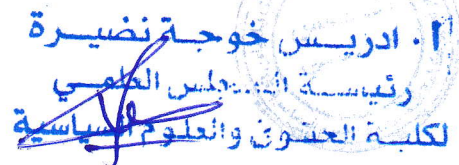 ا. ادريس خوجة نضيرة
رئيسة المجلس العلمي
لكلية الحقوق والعلوم السياسية